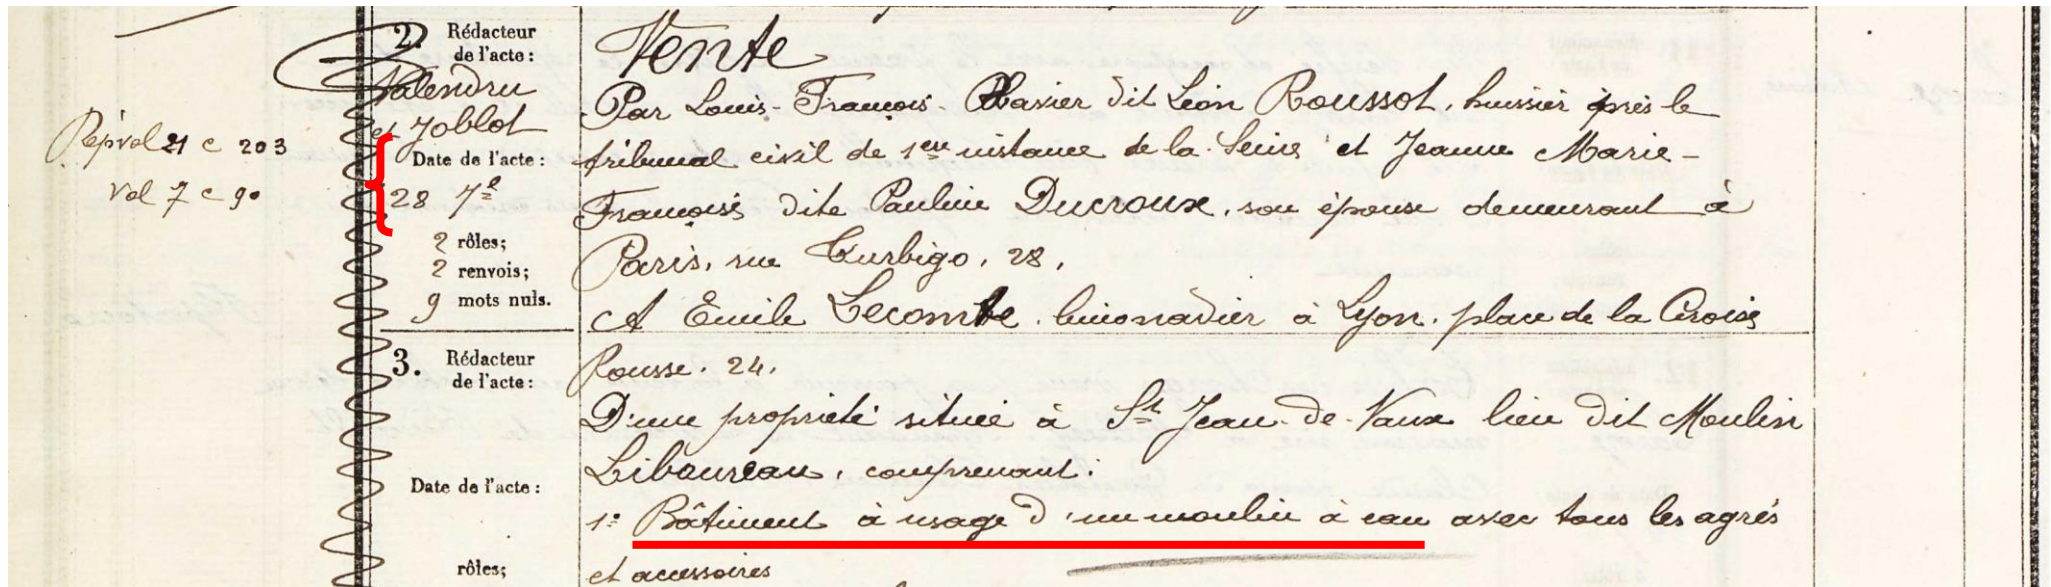 2. Rédacteur
de l'acte :
Valendru
et Joblot
Date de l'acte :
28 7e
2 rôles;
2 renvois;
9 mots nuls.
3. Rédacteur
de l'acte :
Date de l'acte :
rôles;
Rép vol 21 c 203
Vol 7 c 90
Vente
Par Louis-François-Xavier dit Léon Roussot, huissier près le
tribunal civil de 1ere instance de la Seine et Jeanne Marie-
Françoise dite Pauline Ducroux, son épouse demeurant à
Paris, rue Turbigo, 28,
A Emile Lecomte limonadier à Lyon, place de la Croix
Rousse, 24,
D'une propriété située à St Jean-de-Vaux lieu dit Moulin
Liboureau, comprenant :
1° Bâtiment à usage d'un moulin à eau avec tous les agrès
et accessoires